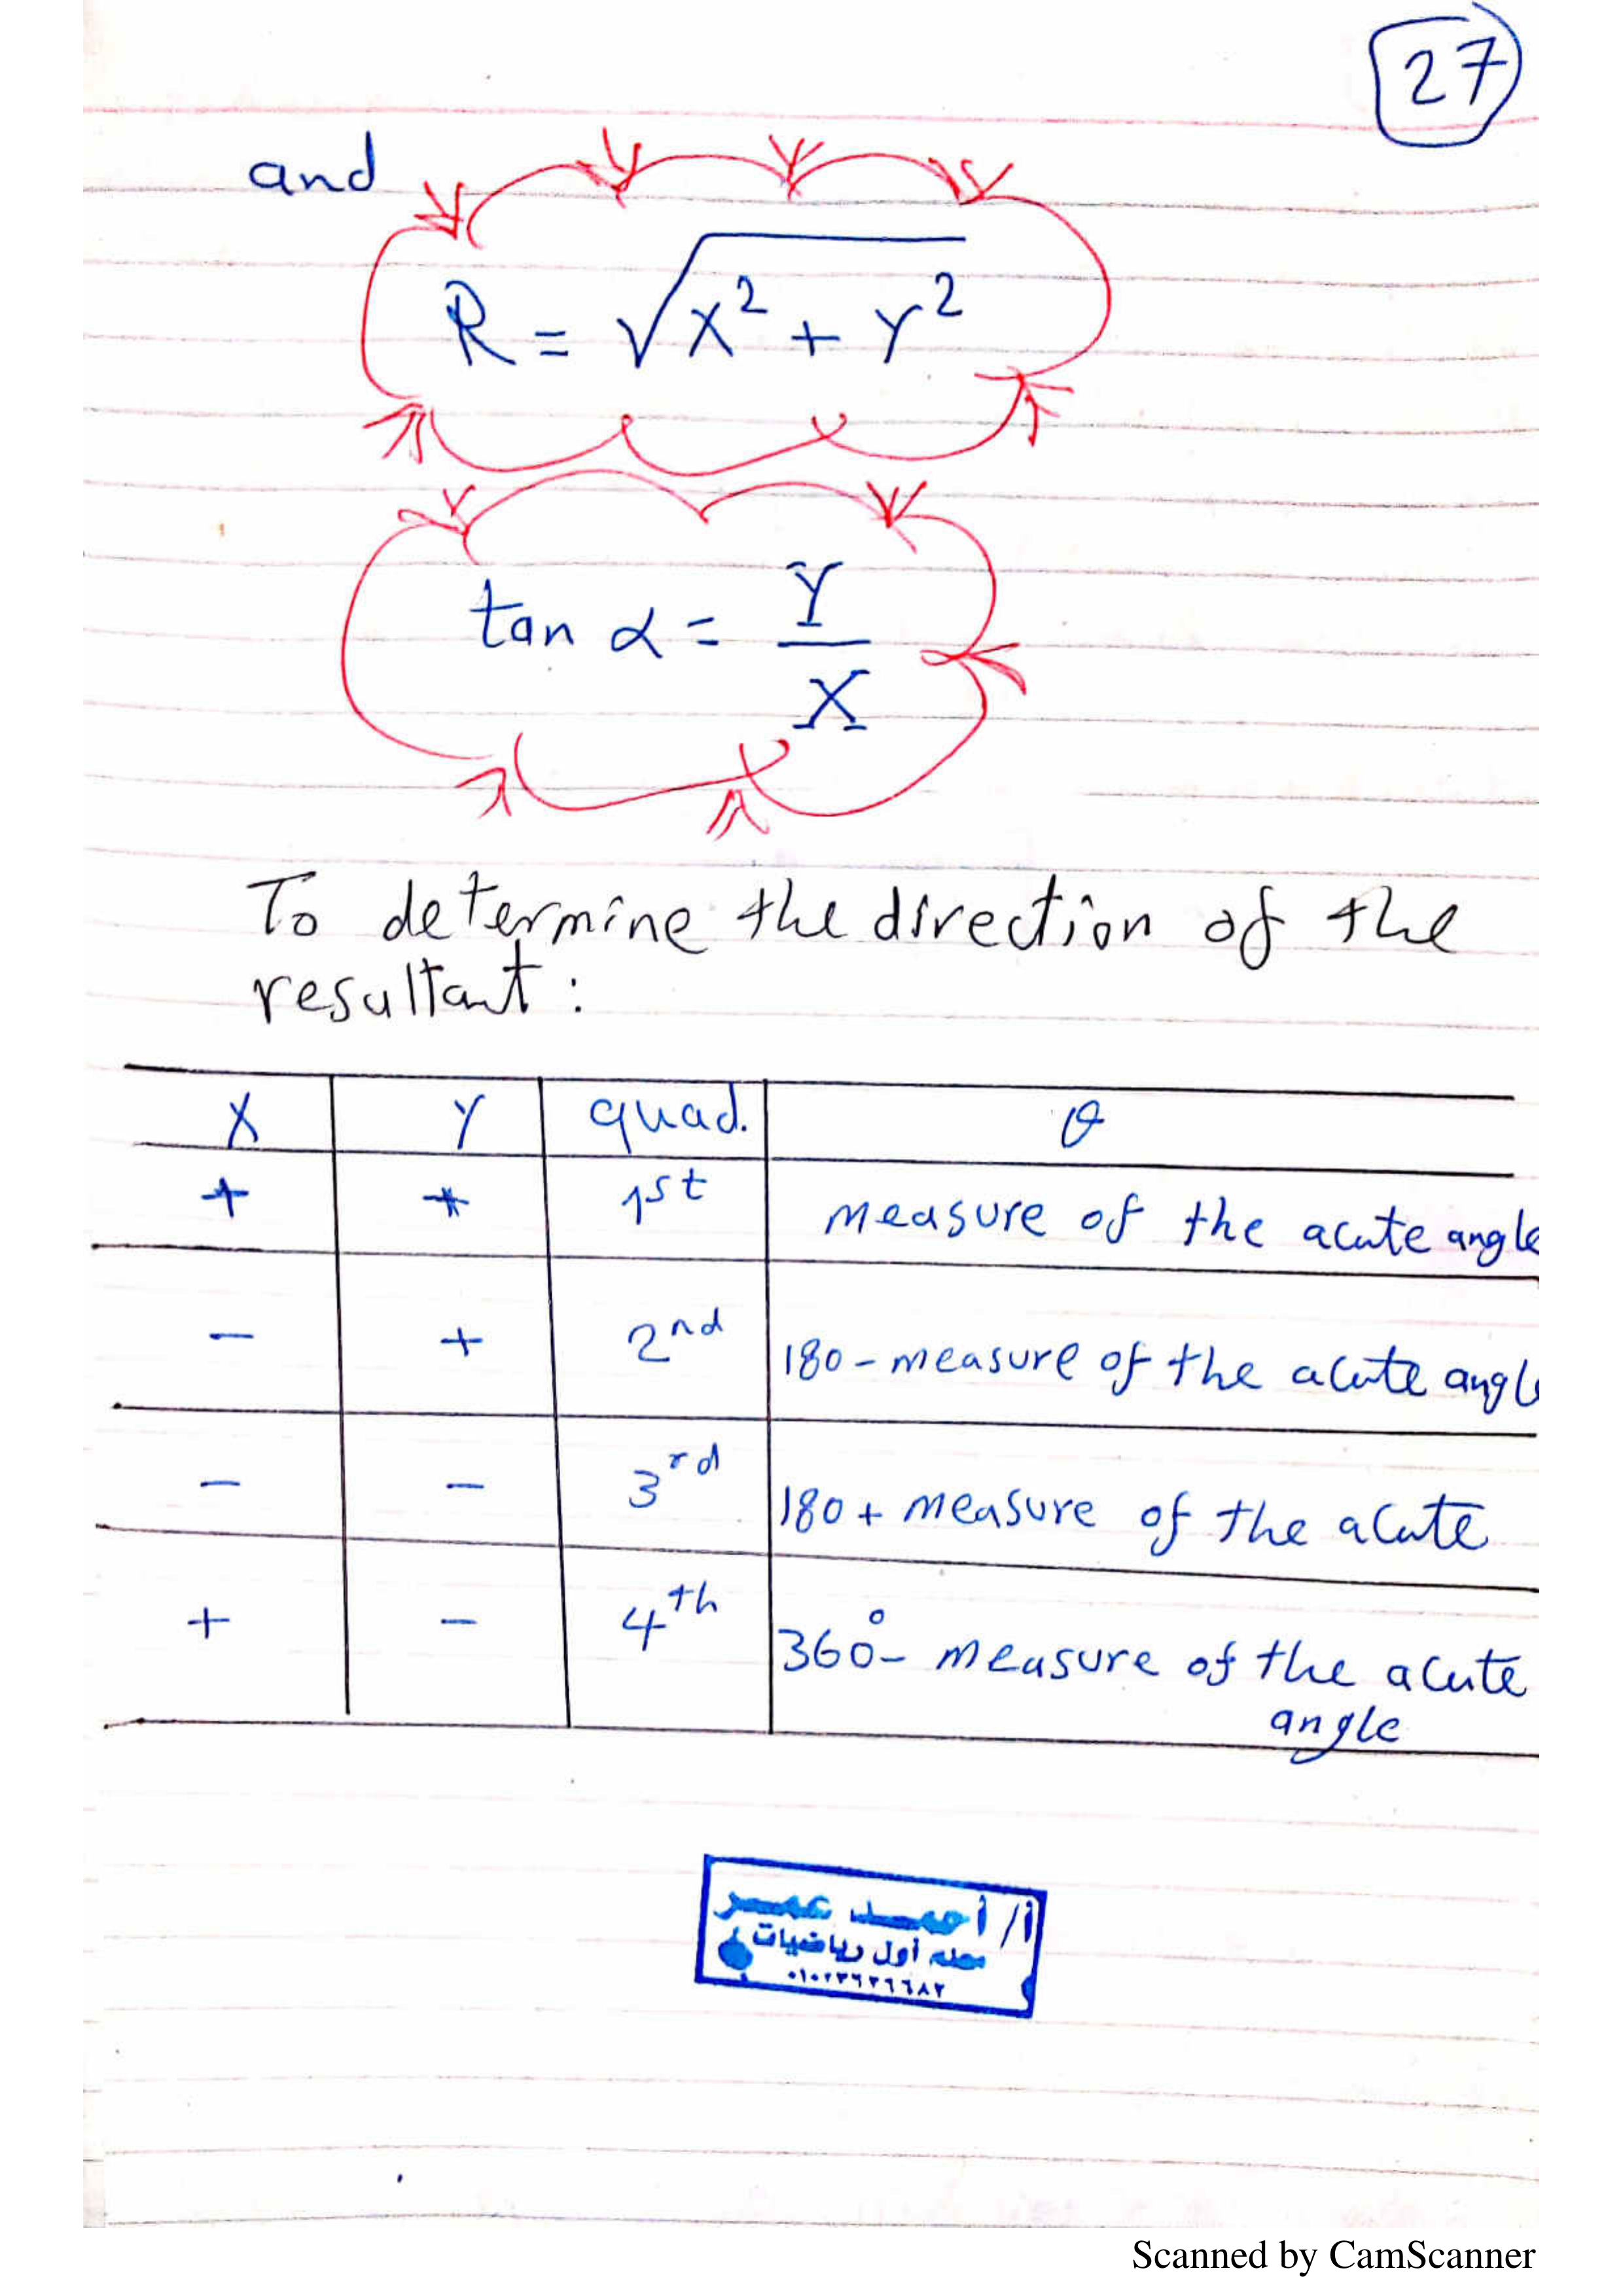 27
and
R = √X² + Y²
tan α = Y/X
To determine the direction of the
resultant :
X Y quad. θ
+ + 1st measure of the acute angle
- + 2nd 180 - measure of the acute angle
- - 3rd 180 + measure of the acute
+ - 4th 360° - measure of the acute
angle
أ/ أحمد عمر
معلم أول رياضيات
Scanned by CamScanner